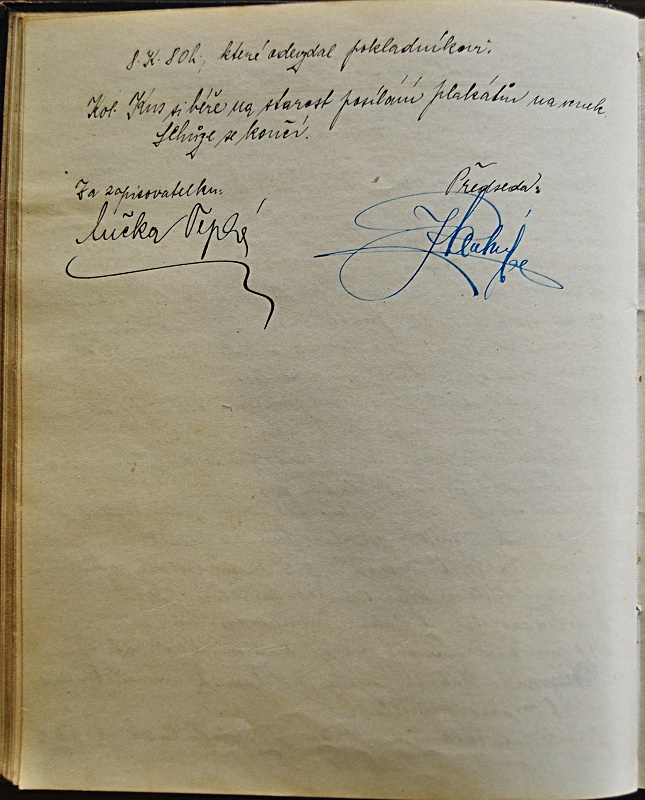 8. K. 80 h., které odevzdal pokladníkovi.
Kol. Kus si béře na starost posílání plakátů na venek.
Schůze se končí.
Za zapisovatelku:
Předseda: